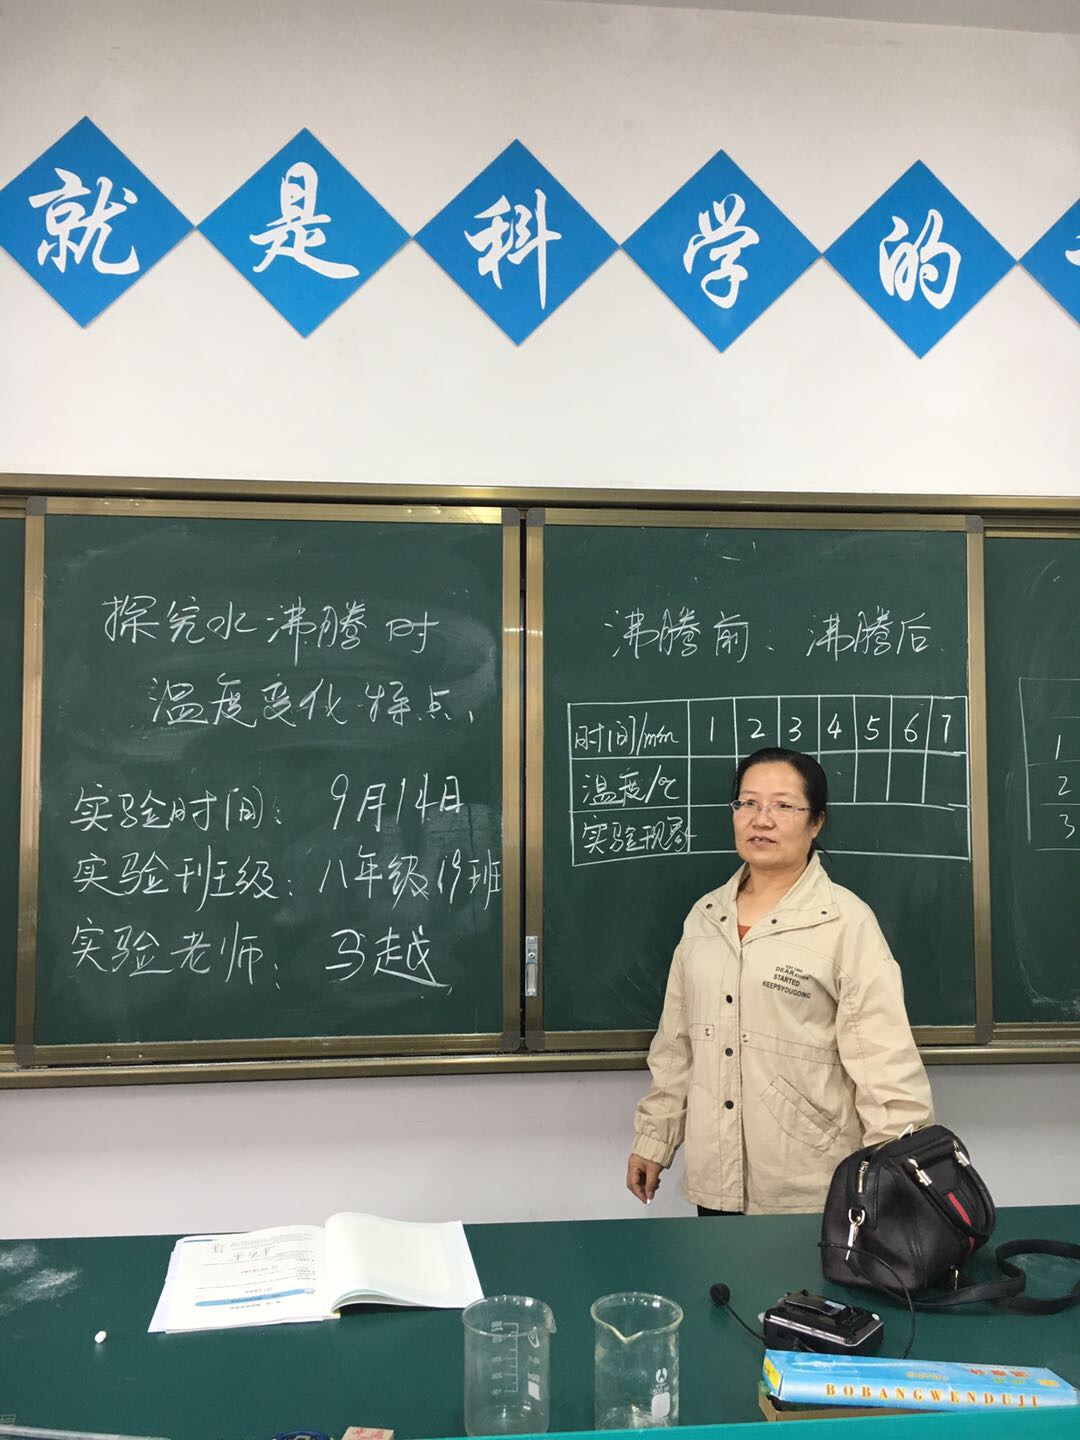 就是科学的
探究水沸腾时
温度变化特点、
实验时间：9月14日
实验班级：八年级19班
实验老师：马越
沸腾前：沸腾后
时间/min 1 2 3 4 5 6 7
温度/℃
实验现象
1
2
3
DEAR
STARTED
KEEPSYOUGOING
BOBANGWENDUJI